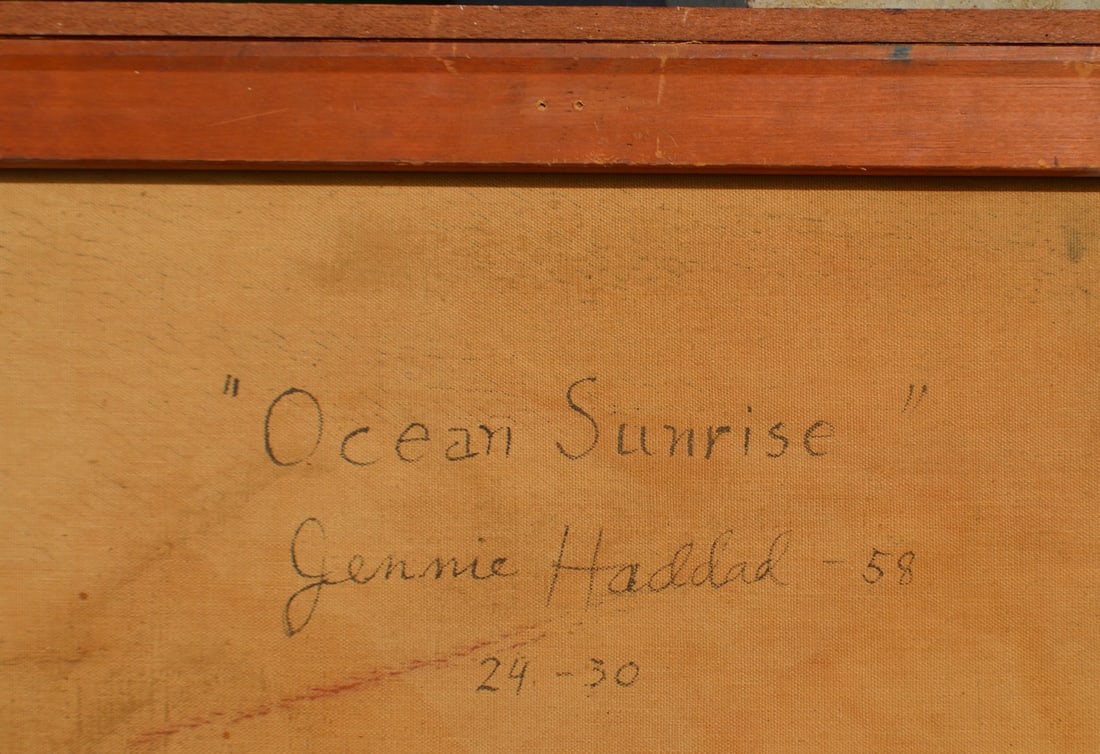 "Ocean Sunrise"
Jennie Haddad - 58
24 - 30